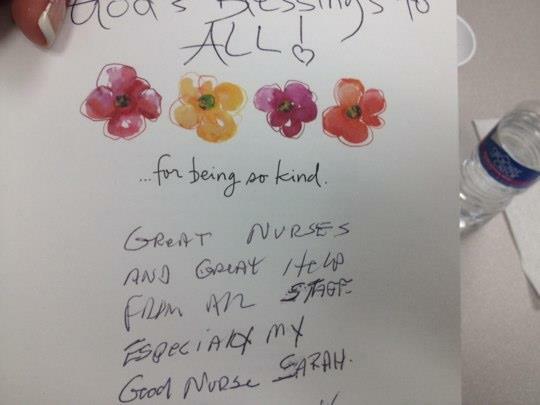 God's Blessings to
ALL!
...for being so kind.
GREAT NURSES
AND GREAT HELP
FROM ALL STAFF
ESPECIALLY MY
Good NURSE SARAH.